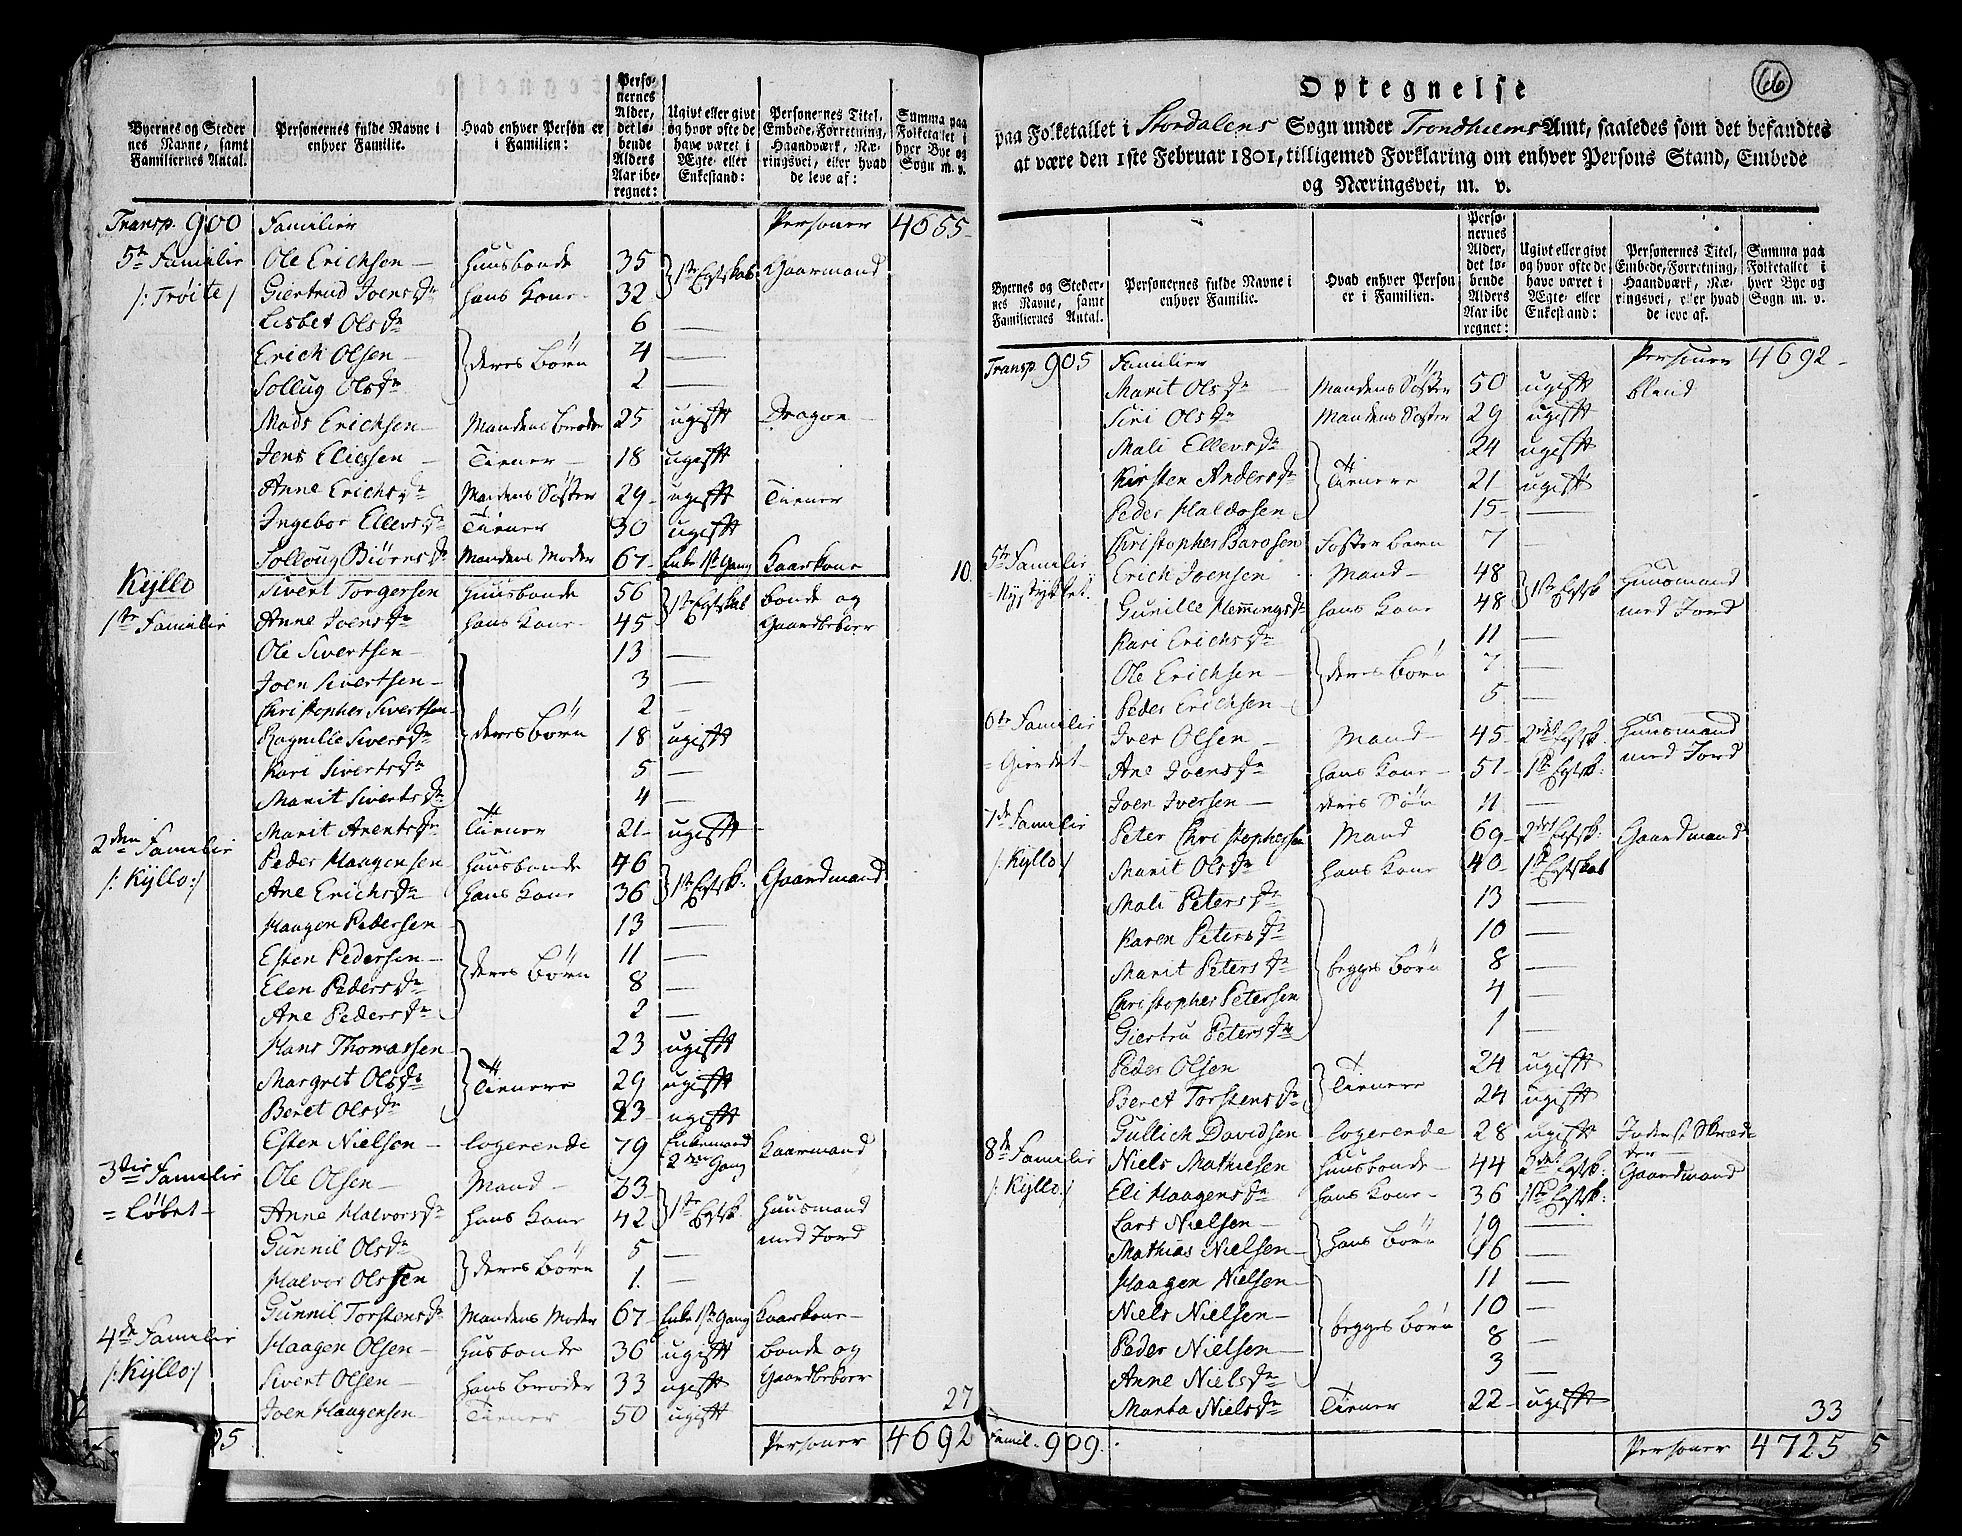 Byernes og Steder
nes Navne, samt
Familiernes Antal.
Personernes fulde Navne i
enhver Familie.
Hvad enhver Person er
i Familien:
Perso-
nernes
Alder,
det lø-
bende
Alders
Aar ibe-
regnet:
Ugivt eller givt
og hvor ofte de
have været i
Ægte- eller
Enkestand:
Personernes Titel,
Embede, Forretning,
Haandværk, Næ-
ringsvei, eller hvad
de leve af:
Summa paa
Folketallet i
hver Bye og
Sogn m. v.
Transp. 900 Familier Personer 4655
5te Familie Ole Erichsen Huusbonde 35 1ste Egtskab Gaarmand
/: Trøite / Giertrud Joens Dr hans Kone 32
Lisbet Ols Dr 6 —
Erich Olsen deres Børn 4 —
Sollug Ols Dr 2 —
Mads Erichsen Mandens Broder 25 ugift Dragon
Jens Eliessen Tiener 18 ugift
Anne Erichs Dr Mandens Søster 29 ugift Tiener
Ingebor Ellevs Dr Tiener 30 ugift
Solloug Biørns Dr Mandens Moder 67 Enke 1ste Gang Kaarkone
10
Kyllo Sivert Torgersen Huusbonde 56 1ste Egtskab bonde og
1ste Familie Anne Joens Dr hans Kone 45 Gaardbeboer
Ole Sivertsen 13 —
Joen Sivertsen 3 —
Christopher Sivertsen 2 —
Ragnille Sivers Dr deres Børn 18 ugift
Kari Siverts Dr 5 —
Marit Siverts Dr 4 —
Marit Arents Dr Tiener 21 ugift
2den Familie Peder Haagensen Huusbonde 46 1ste Egtsk: Gaardmand
/: Kyllo :/ Ane Erichs Dr hans Kone 36
Haagen Pedersen 13 —
Esten Pedersen deres Børn 11 —
Elen Peders Dr 8 —
Ane Peders Dr 2 —
Hans Thomassen 23 ugift
Margret Ols Dr Tienere 29 ugift
Beret Ols Dr 23 ugift
Esten Nielsen logerende 79 Enkemand Kaarmand
2den Gang
3die Familie Ole Olsen Mand 33 1ste Egtsk Huusmand
= Løbet Anne Halvors Dr hans Kone 42 med Jord
Gunnil Ols Dr deres Børn 5 —
Halvor Olssen 1 —
Gunnil Torstens Dr Mandens Moder 67 Enke 1ste Gang Kaarkone
4de Familie Haagen Olsen Husbonde 36 ugift bonde og
/: Kyllo :/ Sivert Olsen hans Broder 33 ugift Gaardbeboer
Joen Haagensen Tiener 50 ugift 27
Personer 4692
66
Optegnelse
paa Folketallet i Stordalens Sogn under Trondhiems Amt, saaledes som det befandtes
at være den 1ste Februar 1801, tilligemed Forklaring om enhver Persons Stand, Embede
og Næringsvei, m. v.
Byernes og Steder-
nes Navne, samt
Familiernes Antal.
Personernes fulde Navne i
enhver Familie.
Hvad enhver Person
er i Familien.
Perso-
nernes
Alder,
det lø-
bende
Alders
Aar ibe
regnet:
Ugivt eller givt
og hvor ofte de
have været i
Ægte- eller
Enkestand:
Personernes Titel,
Embede, Forretning,
Haandværk, Næ-
ringsvei, eller hvad
de leve af.
Summa paa
Folketallet i
hver Bye og
Sogn m. v.
Transp. 905 Familier Personer 4692
Marit Ols Dr Mandens Søster 50 ugift blind
Siri Ols Dr Mandens Søster 29 ugift
Mali Ellevs Dr 24 ugift
Kirsten Anders Dr Tienere 21 ugift
Peder Haldosen 15 —
Christopher Barosen Foster barn 7 —
5te Familie Erich Joensen Mand 48 1ste Egtsk Huusmand
Gunille Hemmings Dr hans Kone 48 med Jord
Kari Erichs Dr 11 —
Ole Erichsen deres Børn 7 —
Peder Erichsen 5 —
6te Familie Iver Olsen Mand 45 2det Egtsk. Huusmand
= Gierdet Ane Joens Dr hans Kone 51 1ste Egtsk: med Jord
Joen Iversen deres Søn 11 —
7de Familie Peter Christophersen Mand 69 2det Egtsk: Gaardmand
/: Kyllo :/ Marit Ols Dr hans Kone 40 1ste Egtskab
Mali Peters Dr 13 —
Karen Peters Dr 10 —
Marit Peters Dr begges Børn 8 —
Christopher Petersen 4 —
Giertru Peters Dr 1 —
Peder Olsen Tienere 24 ugift
Beret Torstens Dr 24 ugift
Gullich Davidsen logerende 28 ugift Skræd-
der
8de Familie Niels Mathiesen Huusbonde 44 2det Egtsk: Gaardmand
/: Kyllo :/ Eli Haagens Dr hans Kone 36 1ste Egtsk:
Lars Nielsen hans Børn 19 —
Mathias Nielsen 16 —
Haagen Nielsen 11 —
Niels Nielsen begges Børn 10 —
Peder Nielsen 8 —
Anne Niels Dr 3 —
Marta Niels Dr Tiener 22 ugift 33
Famil. 909. Personer 4725 5